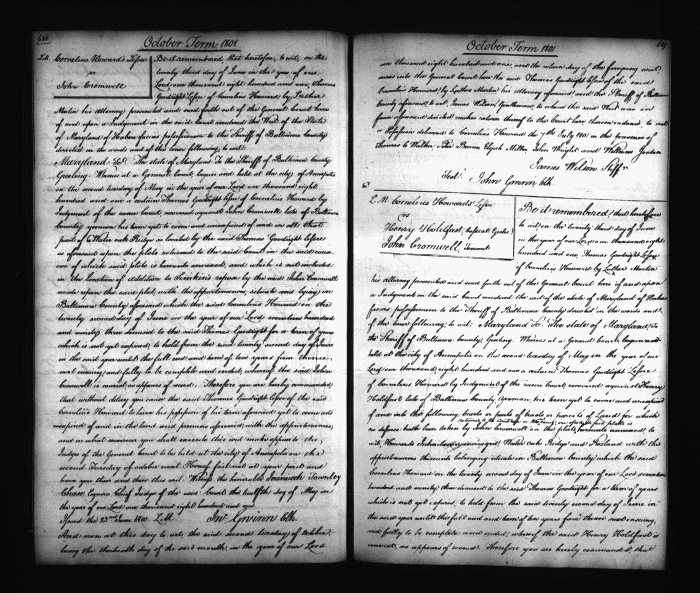 October Term 1801
Cornelius Howard's Lessee
vs
John Cromwell
Be it remembered, that heretofore, to wit, on the
twenty third day of June in the year of our
Lord one thousand eight hundred and one, Thomas
Goodright Lessee of Cornelius Howard by Luther
Martin his Attorney prosecuted and sued forth out of the General Court here
of and upon a Judgment in the said Court rendered the Writ of the State
of Maryland of Habere facias possessionem to the Sheriff of Baltimore County
directed in the words and of the tenor following to wit:
Maryland Sct. The State of Maryland To the Sheriff of Baltimore County
Greeting. Whereas at a General Court begun and held at the City of Annapolis
on the second tuesday of May in the year of our Lord one thousand eight
hundred and one a certain Thomas Goodright Lessee of Cornelius Howard by
Judgment of the same Court, recovered against John Cromwell late of Baltimore
County yeoman his term yet to come and unexpired of and in all that
part of Welsh oak Ridge as located by the said Thomas Goodright Lessee
as aforesaid upon the plots returned to the said Court in the said cause
one of which said plots is hereunto annexed, and which is not included
in the location of Addition to Timkins
made upon the said plot with the appurtenances, situate and lying in
Baltimore County aforesaid which the said Cornelius Howard on the
twenty second day of June in the year of our Lord seventeen hundred
and ninety three demised to the said Thomas Goodright for a term of years
which is not yet expired, to hold from the said twenty second day of June
in the said year until the full end and term of ten years from thence
next ensuing and fully to be complete and ended, whereof the said John
Cromwell is convict as appears of record. Therefore you are hereby commanded,
that without delay you cause the said Thomas Goodright Lessee of the said
Cornelius Howard to have his possession of his term aforesaid yet to come and
unexpired of and in the land and premises aforesaid, with the appurtenances,
and in what manner you shall execute this writ make appear to the
Judges of the General Court to be held at the City of Annapolis on the
second Tuesday of October next. Hereof fail not at your peril and
have you then and there this writ. Witness the honorable Jeremiah Townley
Chase Esquire Chief Judge of the said Court the twelfth day of May in
the year of our Lord one thousand eight hundred and one
Issued the 23rd June 1801. L.M. Jno Gwinn Clk.
And now at this day to wit, the said second tuesday of October,
being the thirteenth day of the said month, in the year of our Lord
October Term 1801
one thousand eight hundred and one, and the return day of the foregoing writ,
comes into the General Court here the said Thomas Goodright Lessee of the said
Cornelius Howard by Luther Martin his Attorney aforesaid, and the Sheriff of Baltimore
County aforesaid to wit, James Wilson Gentleman, to whom the said Writ was in
form aforesaid directed makes return thereof to the Court here thereon indorsed, to wit
Possession delivered to Cornelius Howard the 7th July 1801 in the presence of
Thomas C. Walker, Elijah Miller John Wright and William Jordan
James Wilson Shff
Test John Gwinn Clk.
L.M. Cornelius Howard's Lessee
vs
Henry Holdfast, Casual Ejector
John Cromwell, Tenant
Be it remembered, that heretofore
to wit, on the twenty third day of June
in the year of our Lord one thousand eight
hundred and one, Thomas Goodright Lessee
of Cornelius Howard by Luther Martin
his Attorney prosecuted and sued forth out of the General Court here of and upon
a Judgment in the said Court rendered the writ of the State of Maryland of Habere
facias possessionem to the Sheriff of Baltimore County directed in the words and
of the tenor following; to wit; Maryland Sct. The State of Maryland, To
the Sheriff of Baltimore County, Greeting. Whereas at a General Court, begun and
held at the City of Annapolis on the second tuesday of May in the year of our
Lord one thousand, eight hundred and one a certain Thomas Goodright Lessee
of Cornelius Howard by Judgment of the same Court, recovered against Henry
Holdfast late of Baltimore County, yeoman, his term yet to come and unexpired
of and into the following tracts or parts of tracts or parcels of Land for which
no defence hath been taken by John Cromwell on the plots hereunto annexed to
wit, Howards Welsh oak Ridge and Ireland with the
appurtenances thereunto belonging situate in Baltimore County, which the said
Cornelius Howard on the twenty second day of June in the year of our Lord seventeen
hundred and ninety three demised to the said Thomas Goodright for a term of years
which is not yet expired, to hold from the said twenty second day of June in
the said year until the full end and term of ten years from thence next ensuing,
and fully to be complete and ended, whereof the said Henry Holdfast is
convict, as appears of record. Therefore you are hereby commanded, that